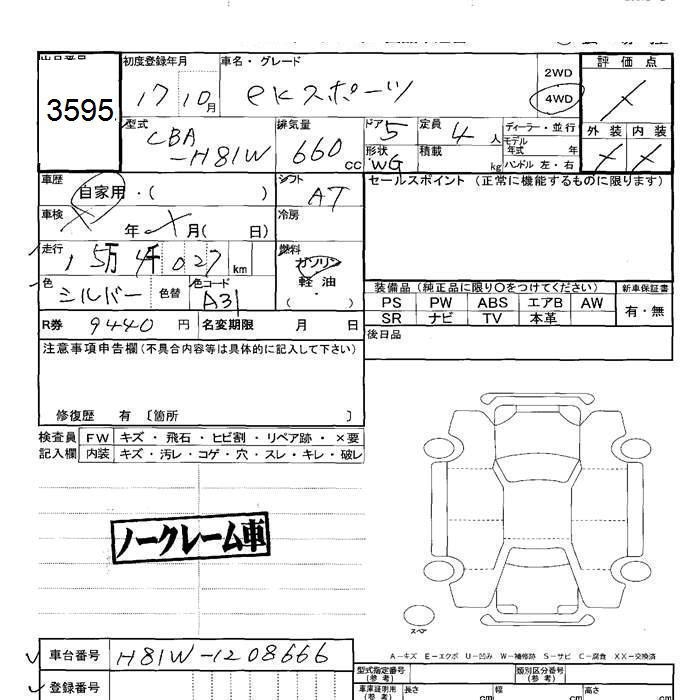 出品番号 初度登録年月 車名・グレード 評価点
3595 17 10月 eKスポーツ 2WD
4WD
外装 内装
型式 CBA-H81W 排気量 660cc ドア 5 定員 4人 ディーラー・並行
形状 WG 積載 kg モデル年式 年
ハンドル 左・右
車歴 自家用・( ) シフト AT セールスポイント(正常に機能するものに限ります)
車検 年 月( 日) 冷房
走行 15万4千027km 燃料 ガソリン
軽油
・
( )
色 シルバー 色替 色コード A31
装備品(純正品に限り○をつけてください) 新車保証書
PS PW ABS エアB AW 有・無
SR ナビ TV 本革
R券 9440円 名変期限 月 日 後日品
注意事項申告欄(不具合内容等は具体的に記入して下さい)
修復歴 有 〔箇所 〕
検査員 FW キズ・飛石・ヒビ割・リペア跡・×要
記入欄 内装 キズ・汚レ・コゲ・穴・スレ・キレ・破レ
ノークレーム車
スペア
A－キズ E－エクボ U－凹み W－補修跡 S－サビ C－腐食 XX－交換済
車台番号 H81W-1208666 型式指定番号(参考) 類別区分番号(参考)
登録番号 車庫証明用(参考) 長さ cm 幅 cm 高さ cm